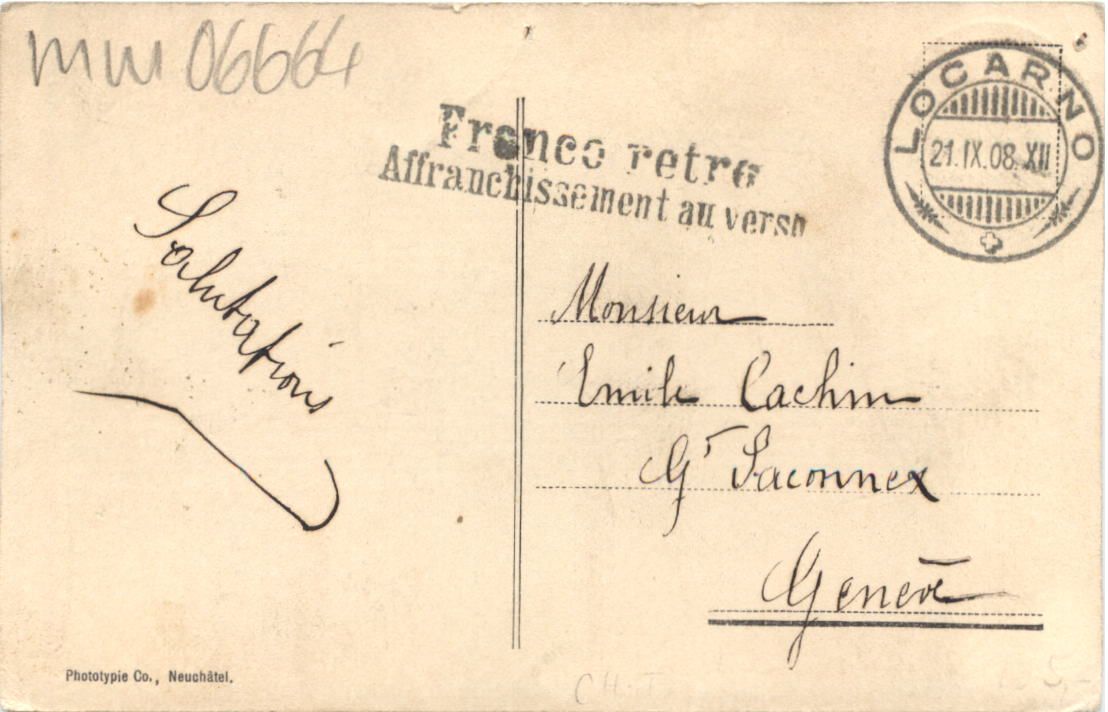 mw 06664
LOCARNO
21.IX.08.XII
Franco retro
Affranchissement au verso
Salutations
Monsieur
Emile Cachin
Gd Saconnex
Genève
Phototypie Co., Neuchâtel.